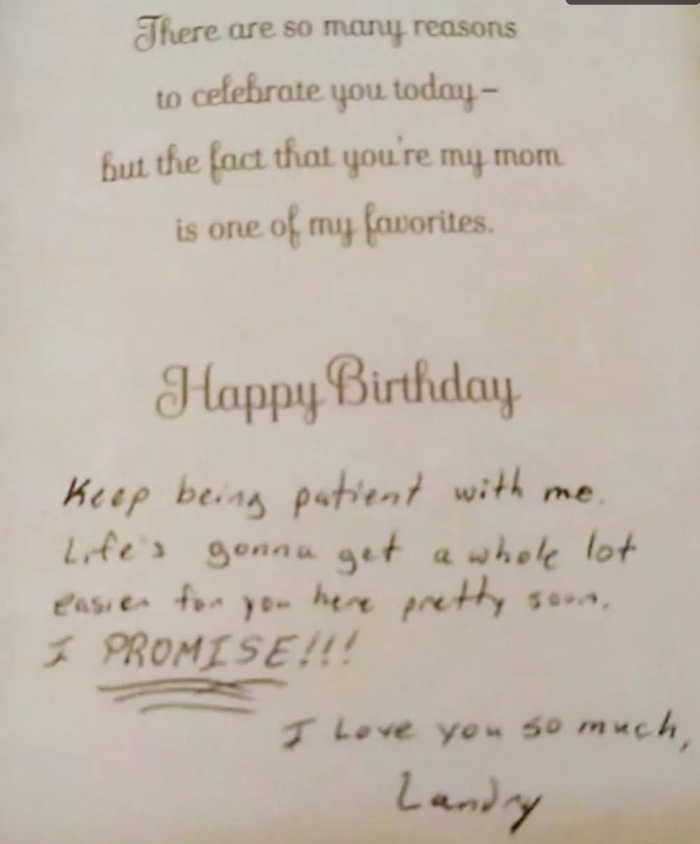 There are so many reasons
to celebrate you today–
but the fact that you're my mom
is one of my favorites.
Happy Birthday
Keep being patient with me.
Life's gonna get a whole lot
easier for you here pretty soon.
I PROMISE!!!
I Love you so much,
Landry